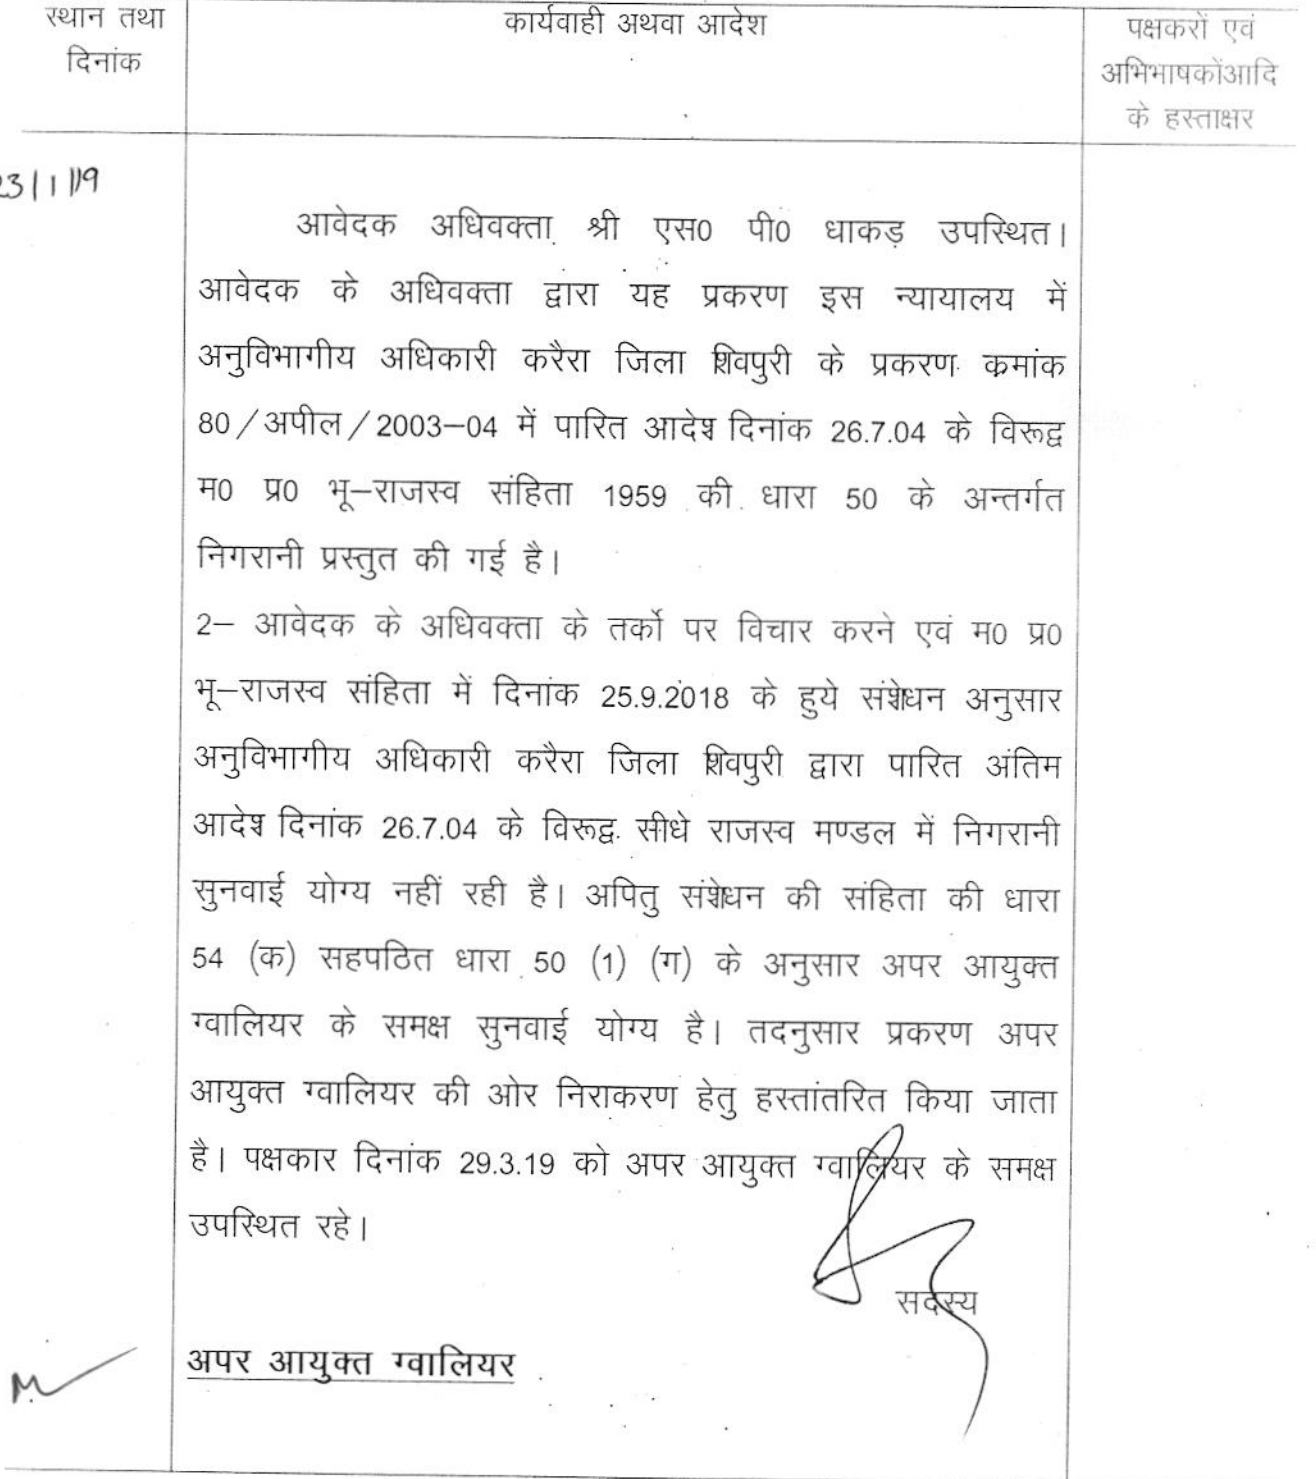 स्थान तथा
दिनांक
कार्यवाही अथवा आदेश
पक्षकरों एवं
अभिभाषकोंआदि
के हस्ताक्षर
23|1|19
आवेदक अधिवक्ता श्री एस0 पी0 धाकड़ उपस्थित।
आवेदक के अधिवक्ता द्वारा यह प्रकरण इस न्यायालय में
अनुविभागीय अधिकारी करैरा जिला शिवपुरी के प्रकरण कमांक
80/अपील/2003–04 में पारित आदेश दिनांक 26.7.04 के विरूद्व
म0 प्र0 भू–राजस्व संहिता 1959 की धारा 50 के अन्तर्गत
निगरानी प्रस्तुत की गई है।
2– आवेदक के अधिवक्ता के तर्को पर विचार करने एवं म0 प्र0
भू–राजस्व संहिता में दिनांक 25.9.2018 के हुये संशेधन अनुसार
अनुविभागीय अधिकारी करैरा जिला शिवपुरी द्वारा पारित अंतिम
आदेश दिनांक 26.7.04 के विरूद्व सीधे राजस्व मण्डल में निगरानी
सुनवाई योग्य नहीं रही है। अपितु संशेधन की संहिता की धारा
54 (क) सहपठित धारा 50 (1) (ग) के अनुसार अपर आयुक्त
ग्वालियर के समक्ष सुनवाई योग्य है। तदनुसार प्रकरण अपर
आयुक्त ग्वालियर की ओर निराकरण हेतु हस्तांतरित किया जाता
है। पक्षकार दिनांक 29.3.19 को अपर आयुक्त ग्वालियर के समक्ष
उपस्थित रहे।
सदस्य
अपर आयुक्त ग्वालियर